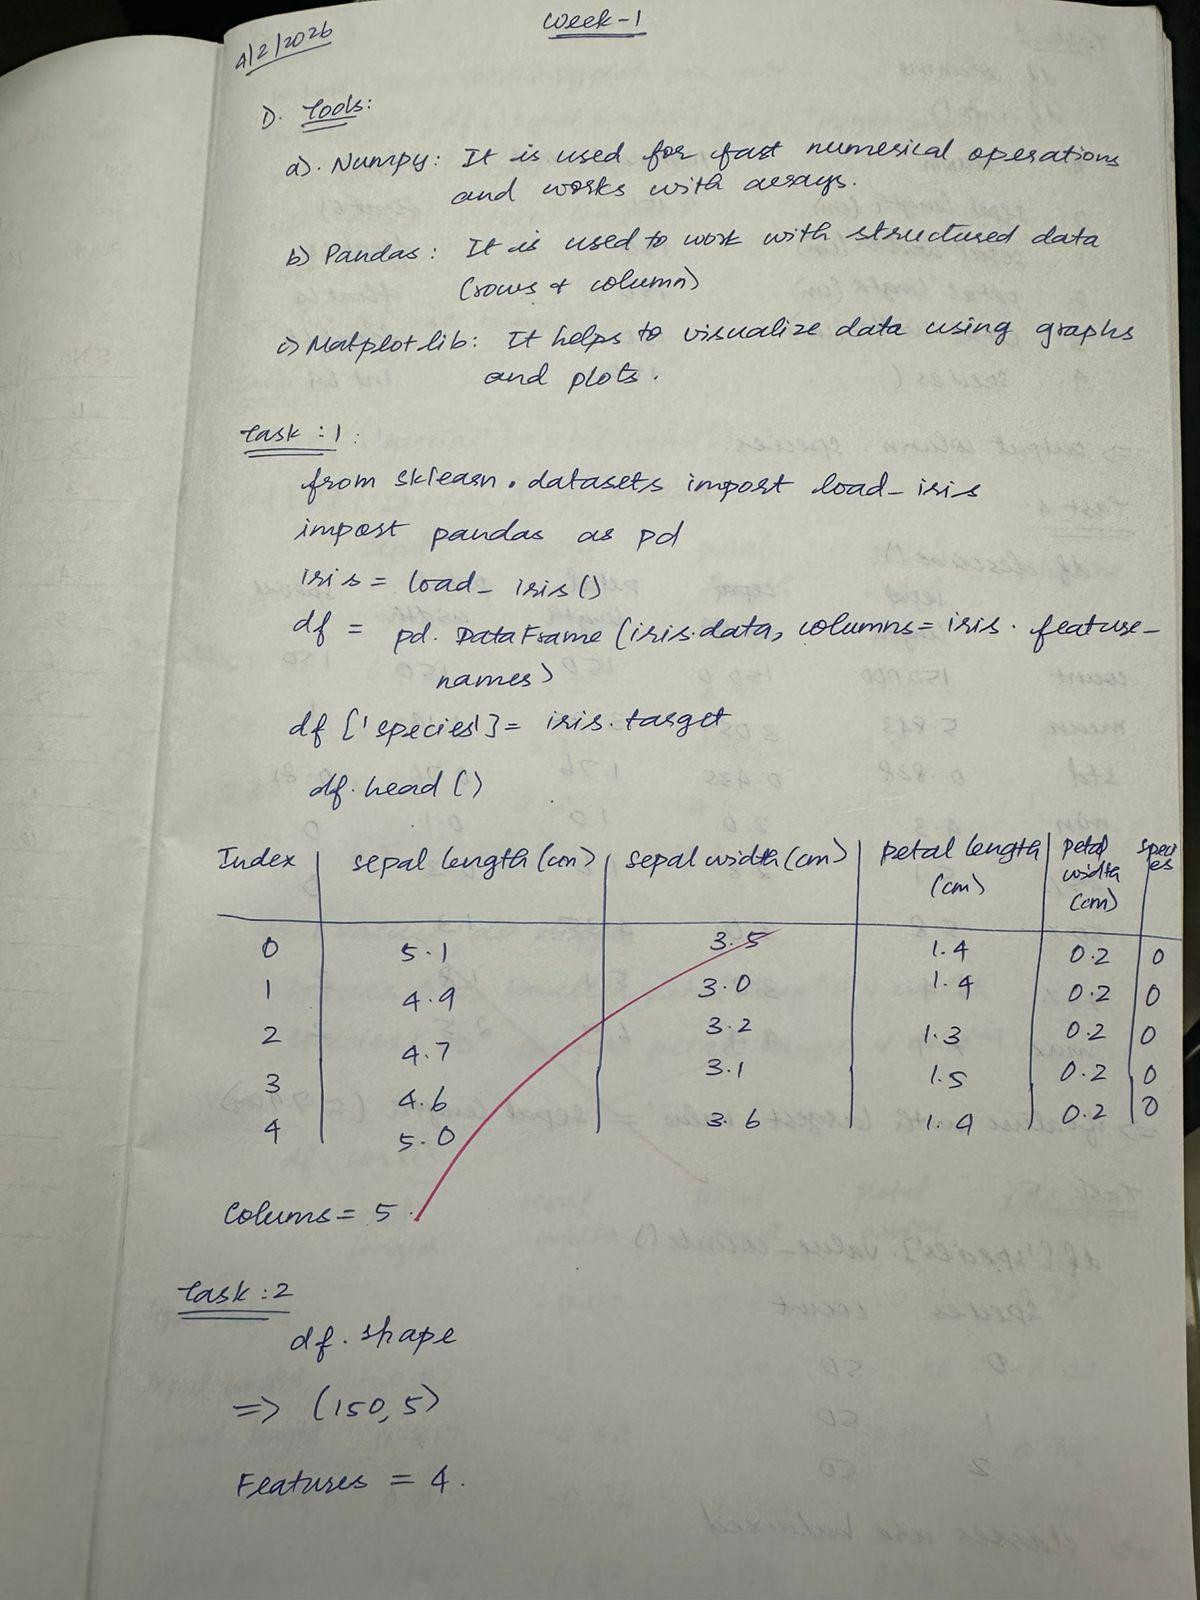 Week-1
4/2/2026
D. Tools:
a). Numpy: It is used for fast numerical operations
and works with arrays.
b) Pandas: It is used to work with structured data
(rows & column)
c) Matplotlib: It helps to visualize data using graphs
and plots.
Task:1:
from sklearn.datasets import load_iris
import pandas as pd
iris = load_iris()
df = pd.DataFrame (iris.data, columns = iris.feature_
names)
df ['species'] = iris.target
df.head ()
Index | sepal length (cm) | sepal width (cm) | petal length (cm) | petal width (cm) | species
0 | 5.1 | 3.5 | 1.4 | 0.2 | 0
1 | 4.9 | 3.0 | 1.4 | 0.2 | 0
2 | 4.7 | 3.2 | 1.3 | 0.2 | 0
3 | 4.6 | 3.1 | 1.5 | 0.2 | 0
4 | 5.0 | 3.6 | 1.4 | 0.2 | 0
Colums = 5.
Task:2
df.shape
=> (150,5)
Features = 4.